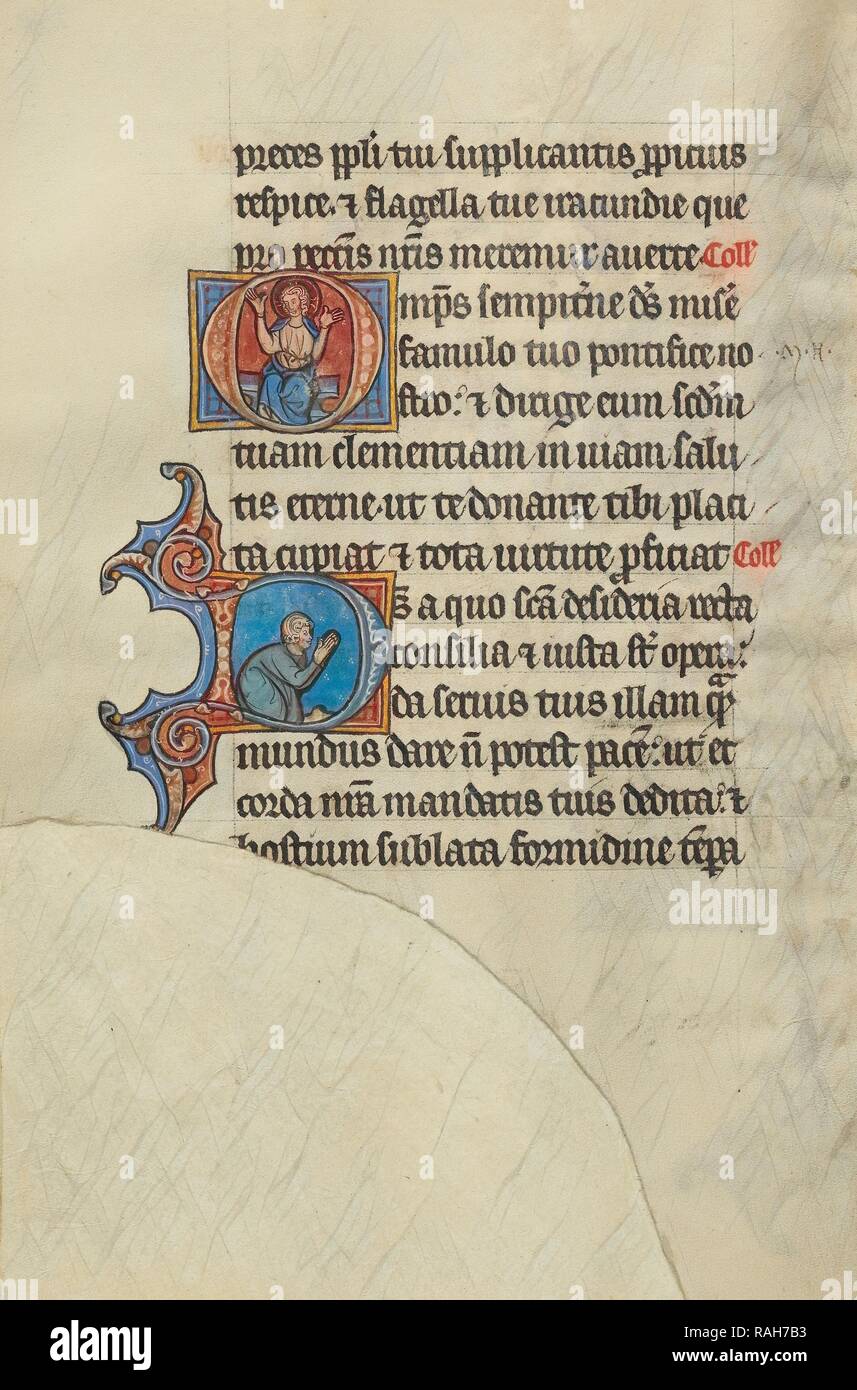 preces ppli tui supplicantis ppicius
respice. ⁊ flagella tue iracundie que
pro peccis nr̄is meremur auerte. Coll̄
Omp̄s sempit̄ne ds̄ mise
famulo tuo pontifice no
stro. ⁊ dirige eum scdm̄
tuam clementiam in uiam salu
tis eterne. ut te donante tibi placi
ta cupiat ⁊ tota uirtute pficiat Coll̄
Ds̄ a quo scā desideria recta
consilia ⁊ iusta st̄ opera:
da seruis tuis illam quā
mundus dare n̄ potest pacē: ut et
corda nr̄a mandatis tuis dedita: ⁊
hostium sublata formidine tēpa
alamy
Image ID: RAH7B3
www.alamy.com